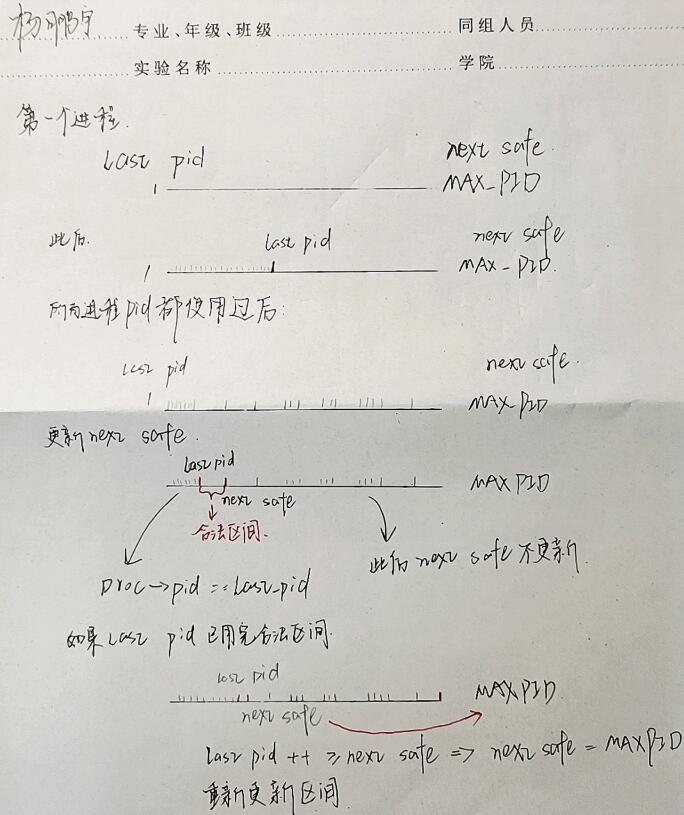 杨鹏宇 专业、年级、班级 同组人员
实验名称 学院
第一个进程.
last pid next safe.
1 MAX_PID
此后. last pid next safe
1 MAX_PID.
所有进程pid都使用过后:
last pid next safe.
1 MAX_PID
更新next safe.
last pid
next safe MAXPID
合法区间.
此后next safe不更新.
proc->pid == last_pid
如果last pid已用完合法区间.
last pid
next safe MAXPID.
last pid ++ ≥ next safe => next safe = MAXPID
重新更新区间.